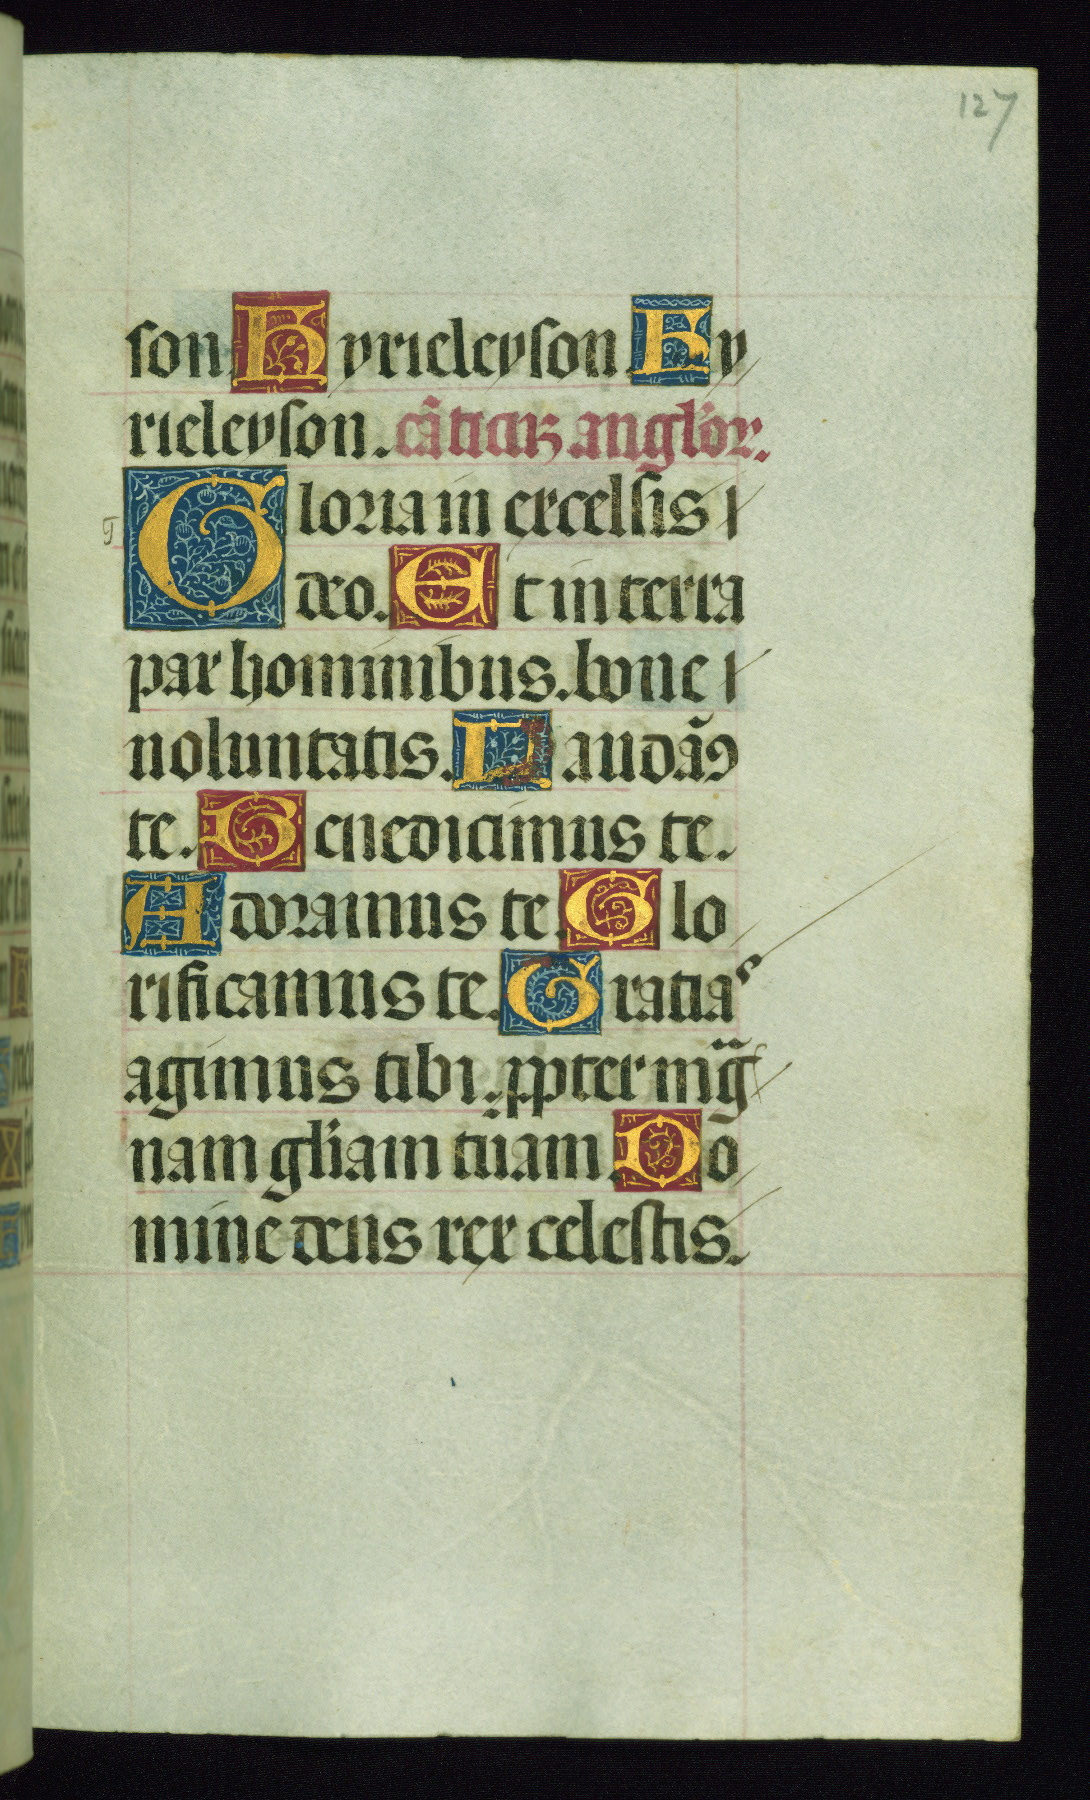 127
son. Kyrieleyson. Ky
rieleyson. cãticũ anglor̃.
Gloria in excelsis
deo. Et in terra
pax hominibus. bone
uoluntatis. Laudam̃9
te. Benedicimus te.
Adoramus te. Glo
rificamus te. Gratias
agimus tibi. ꝓpter mag̃
nam gl̃iam tuam. Do
mine deus rex celestis.